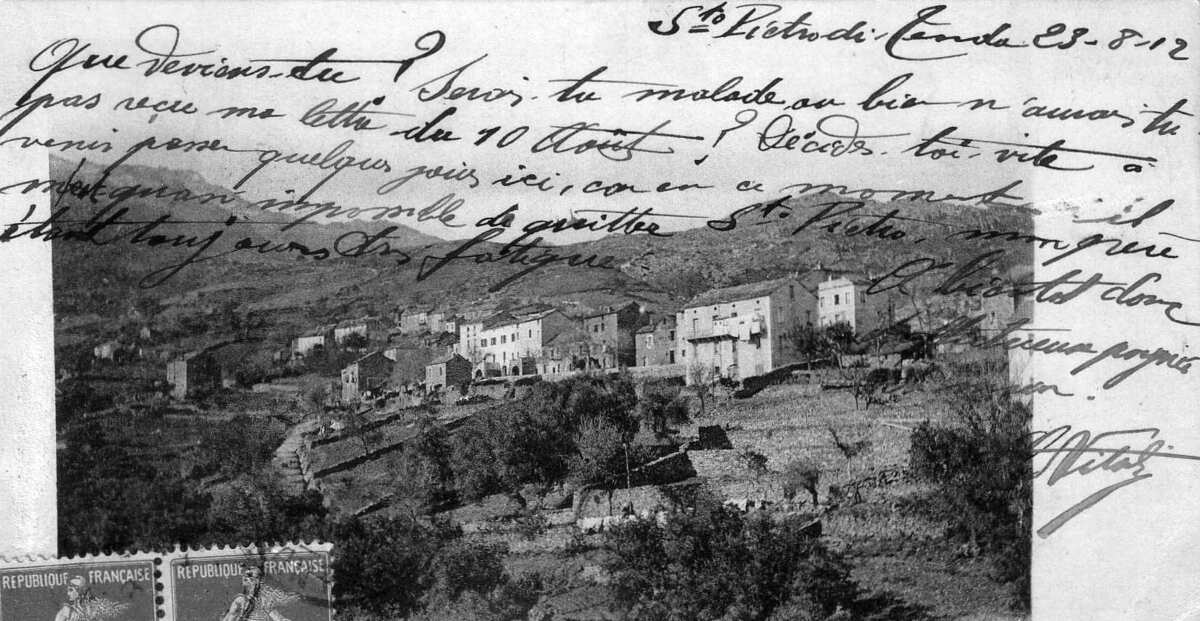 Sto Piétro di Tenda 23-8-12
Que deviens-tu ? Serais-tu malade, ou bien n'aurais tu
pas reçu ma lettre du 10 Août ? Décides-toi vite à
venir passer quelques jours ici, car en ce moment il
m'est quasi impossible de quitter Sto Piétro, mon père
étant toujours très fatigué.
A bientôt donc
affectueuse poignée
main.
Vitali
REPUBLIQUE FRANÇAISE
REPUBLIQUE FRANÇAISE